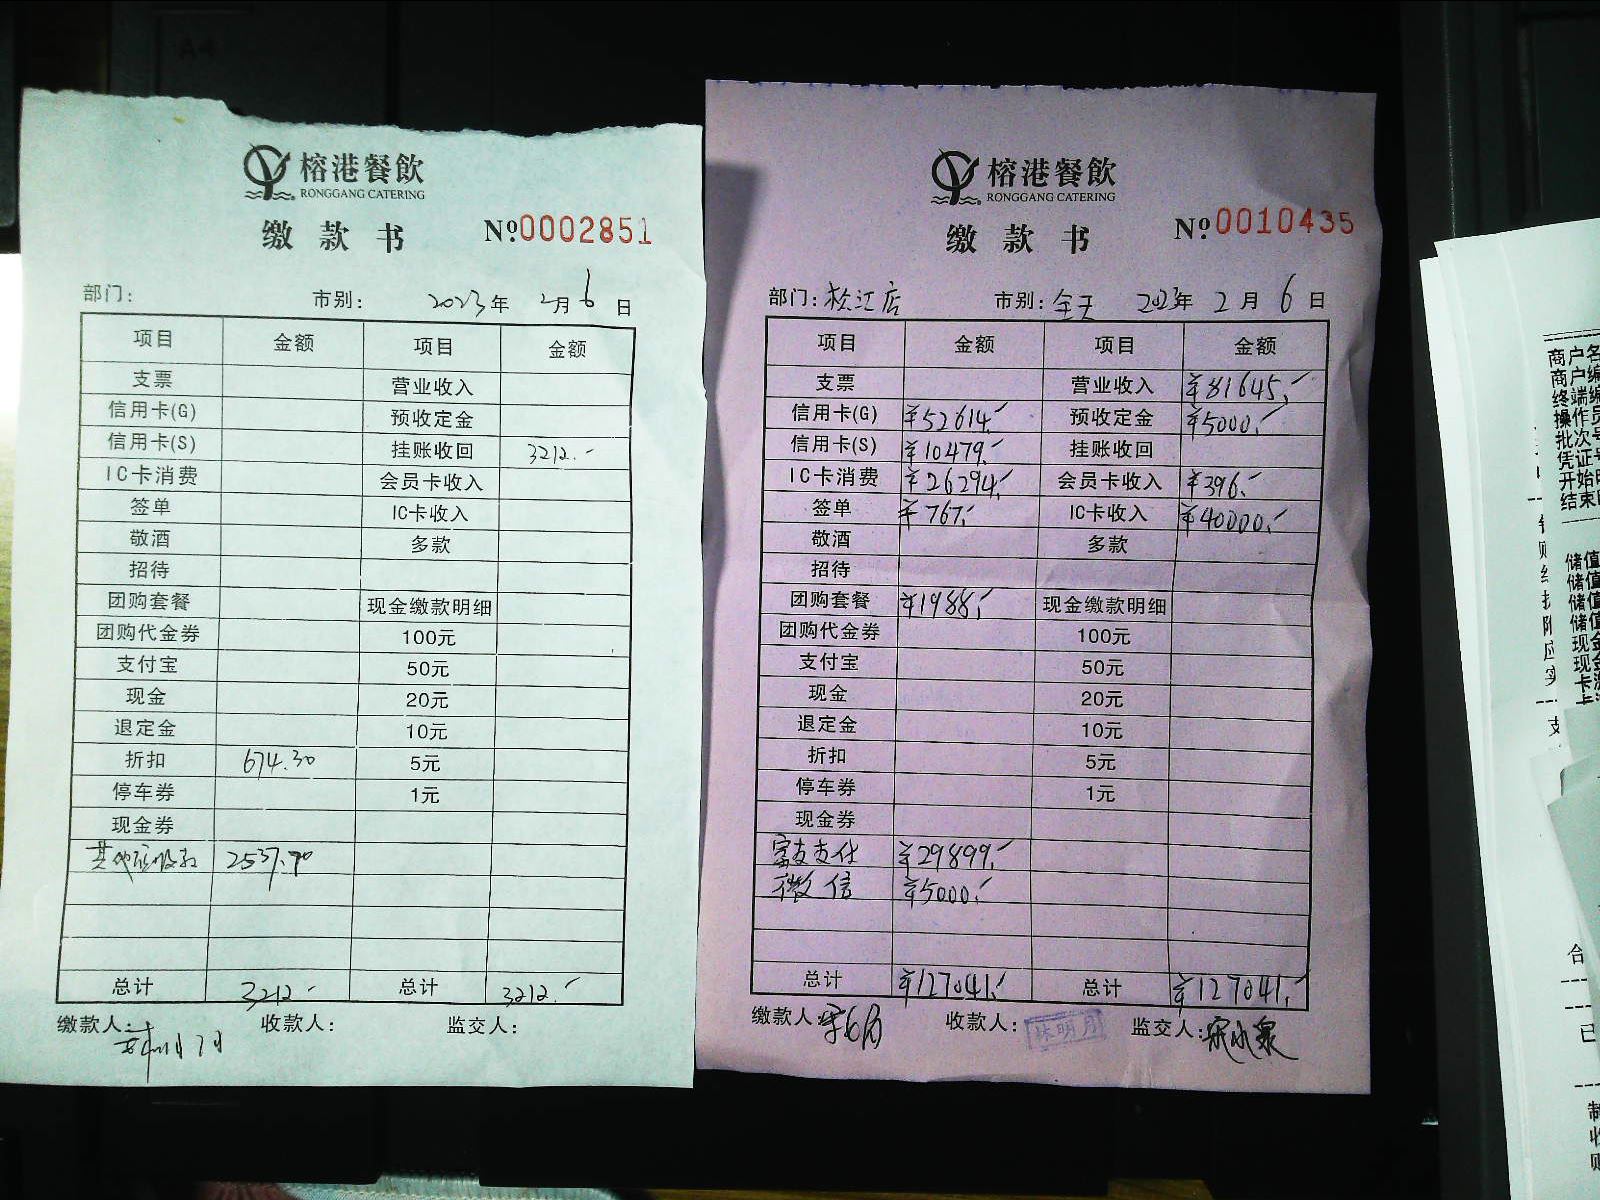 榕港餐飲
RONGGANG CATERING
缴款书 №0002851
部门： 市别： 2023年 2月 6日
项目 金额 项目 金额
支票 营业收入
信用卡(G) 预收定金
信用卡(S) 挂账收回 3212.-
IC卡消费 会员卡收入
签单 IC卡收入
敬酒 多款
招待
团购套餐 现金缴款明细
团购代金券 100元
支付宝 50元
现金 20元
退定金 10元
折扣 674.30 5元
停车券 1元
现金券
其他应收款 2537.70
总计 3212.- 总计 3212.-
缴款人： 收款人： 监交人：
榕港餐飲
RONGGANG CATERING
缴款书 №0010435
部门：松江店 市别：全天 2023年 2月 6日
项目 金额 项目 金额
支票 营业收入 ¥81645.-
信用卡(G) ¥52614.- 预收定金 ¥5000.-
信用卡(S) ¥10479.- 挂账收回
IC卡消费 ¥26294.- 会员卡收入 ¥396.-
签单 ¥767.- IC卡收入 ¥40000.-
敬酒 多款
招待
团购套餐 ¥1988.- 现金缴款明细
团购代金券 100元
支付宝 50元
现金 20元
退定金 10元
折扣 5元
停车券 1元
现金券
富友支付 ¥29899.-
微信 ¥5000.-
总计 ¥127041.- 总计 ¥127041.-
缴款人： 收款人： 监交人：
商户名
商户编
终端编
操作员
批次号
凭证号
开始时
结束时
储值
储值
储值
储值
现金
现金